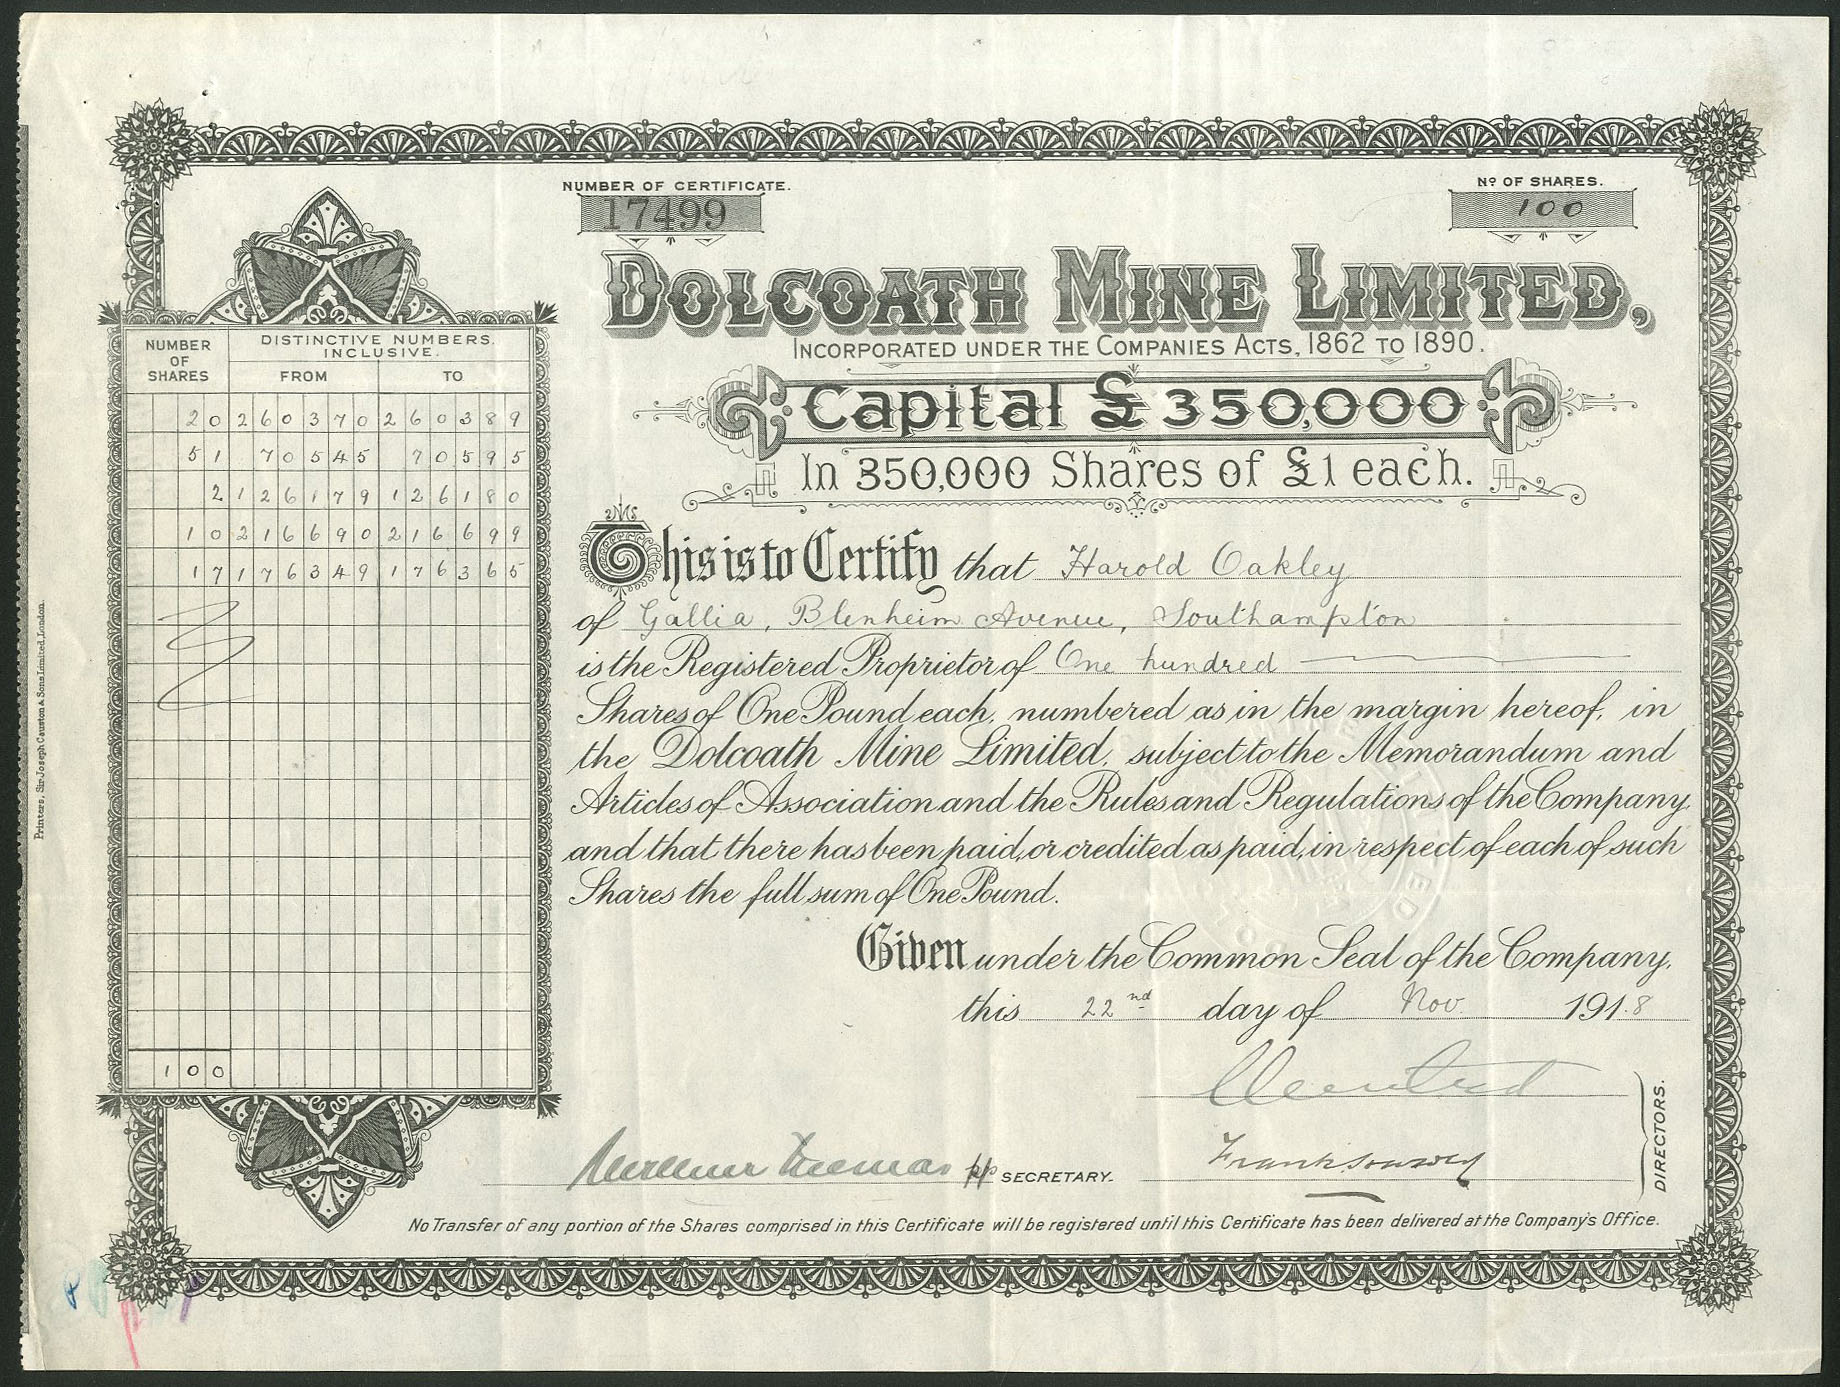 NUMBER OF CERTIFICATE.
17499
Nº OF SHARES.
100
DOLCOATH MINE LIMITED,
INCORPORATED UNDER THE COMPANIES ACTS, 1862 TO 1890.
Capital £350,000
In 350,000 Shares of £1 each.
NUMBER OF SHARES
DISTINCTIVE NUMBERS. INCLUSIVE.
FROM TO
20 260370 260389
51 70545 70595
2 126179 126180
10 216690 216699
17 176349 176365
100
This is to Certify that Harold Oakley
of Gallia, Blenheim Avenue, Southampton
is the Registered Proprietor of One hundred
Shares of One Pound each, numbered as in the margin hereof, in
the Dolcoath Mine Limited, subject to the Memorandum and
Articles of Association and the Rules and Regulations of the Company
and that there has been paid, or credited as paid, in respect of each of such
Shares the full sum of One Pound.
Given under the Common Seal of the Company,
this 22nd day of Nov. 1918
DIRECTORS.
pp SECRETARY.
No Transfer of any portion of the Shares comprised in this Certificate will be registered until this Certificate has been delivered at the Company's Office.
Printers, Sir Joseph Causton & Sons Limited, London.